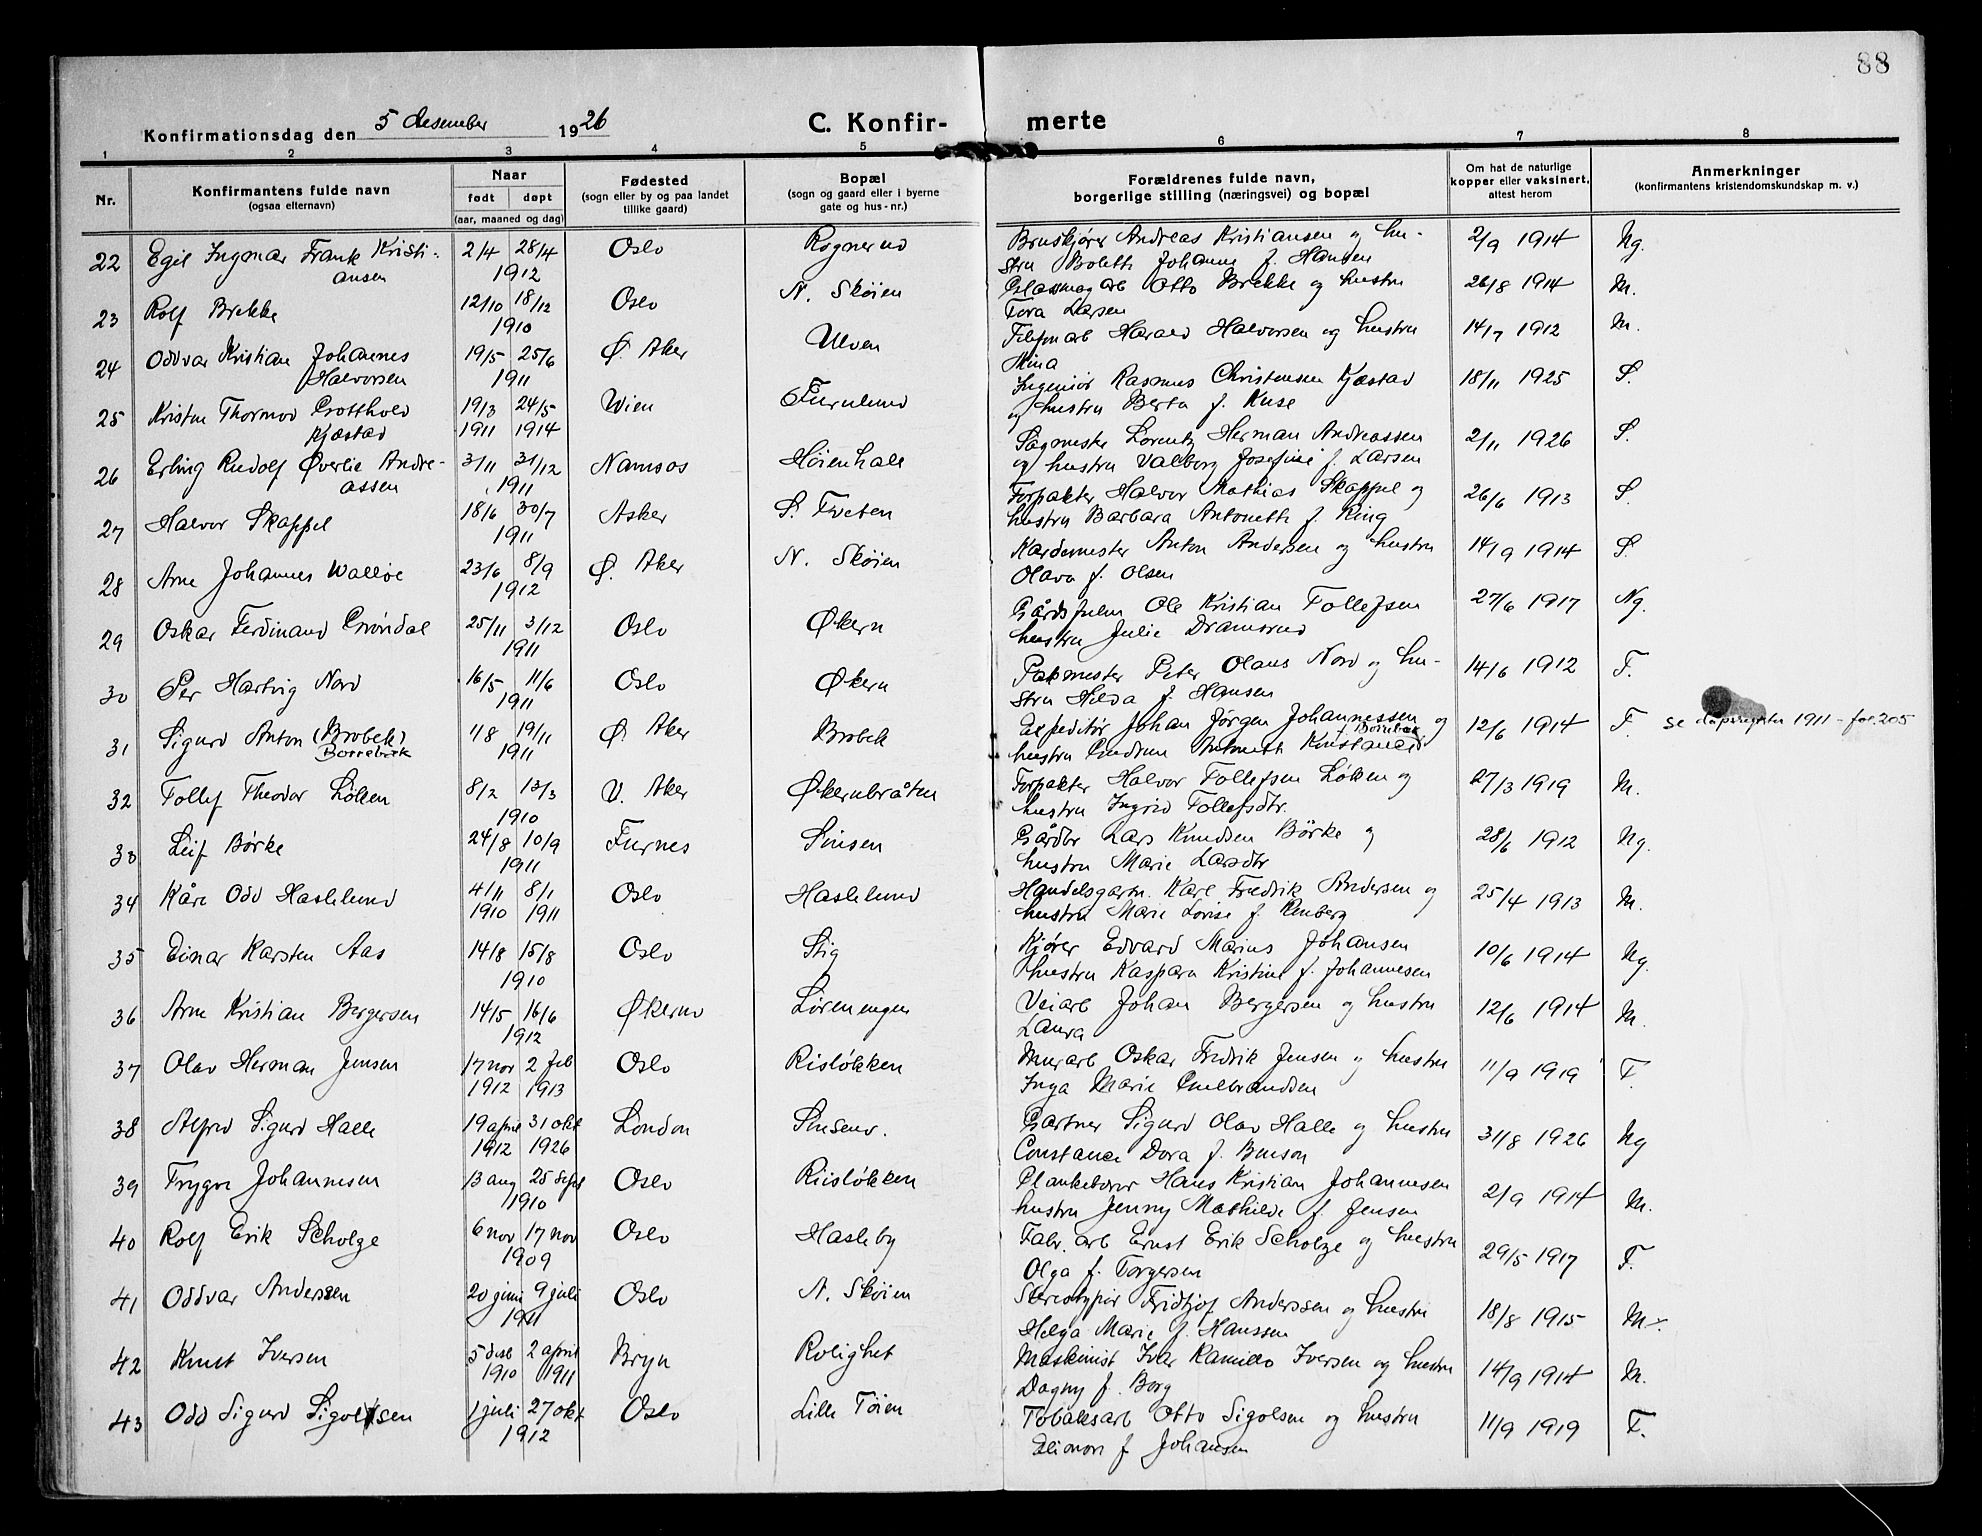 88
Konfirmationsdag den 5 desember 1926
C. Konfirmerte
1 2 3 4 5 6 7 8
Nr.
Konfirmantens fulde navn
(ogsaa efternavn)
Naar
født døpt
(aar, maaned og dag)
Fødested
(sogn eller by og paa landet
tillike gaard)
Bopæl
(sogn og gaard eller i byerne
gate og hus-nr.)
Forældrenes fulde navn,
borgerlige stilling (næringsvei) og bopæl
Om hat de naturlige
kopper eller vaksinert,
attest herom
Anmerkninger
(konfirmantens kristendomskundskap m. v.)
22 Egil Ingmar Frank Kristi- 2/4 28/4 Oslo Rognerud Bruskjører Andreas Kristiansen og hu- 2/9 1914 Ng.
ansen 1912 stru Bolette Johanne f. Hansen
23 Rolf Brekke 12/10 18/12 Oslo N. Skøien Glassmag arb Otto Brekke og hustru 26/8 1914 M.
1910 Tora Larsen
24 Oddvar Kristian Johannes 19/5 25/6 Ø. Aker Ulven Telefonarb Harald Halvorsen og hustru 14/7 1912 M.
Halvorsen 1911 Mina
25 Kristen Thormod Gotthold 19/3 24/5 Wien Furulund Ingeniør Rasmus Christensen Kjæstad 18/11 1925 S.
Kjæstad 1911 1914 og hustru Berta f. Kuse
26 Erling Rudolf Øverlie Andre- 3/11 31/12 Namsos Høienhall Sagmester Lorentz Herman Andreassen 2/11 1926 S.
assen 1911 og hustru Valborg Josefine f. Larsen
27 Halvor Skappel 18/6 30/7 Asker S. Tveten Forpakter Halvor Mathias Skappel og 26/6 1913 S.
1911 hustru Barbara Antonette f. Ring
28 Arne Johannes Walløe 23/6 8/9 Ø. Aker N. Skøien Kardemester Anton Andersen og hustru 14/9 1914 S.
1912 Olava f. Olsen
29 Oskar Ferdinand Grøndal 25/11 3/12 Oslo Økern Gårdsfulm Ole Kristian Tollefsen 27/6 1917 Ng.
1911 hustru Julie Dramsrud
30 Per Hartvig Nord 16/5 11/6 Oslo Økern Pakmester Peter Olaus Nord og hu- 14/6 1912 T.
1911 stru Hilda f. Hansen
31 Sigurd Anton (Brobek) 1/8 19/11 Ø. Aker Brobek Expeditør Johan Jørgen Johannessen og 12/6 1914 T. se dåpsregister 1911 - fol. 205
1911 hustru Gudrun Antonette
32 Tollef Theodor Løken 8/2 13/3 V. Aker Økernbråten Forpakter Halvor Tollefsen Løken og 27/3 1919 M.
1910 hustru Ingrid Tollefsdtr.
33 Leif Børke 24/8 10/9 Furnes Sinsen Gårdbr Lars Knudsen Børke og 28/6 1912 Ng.
1911 hustru Marie Larsdtr
34 Kåre Odd Haslelund 4/11 8/1 Oslo Haslelund Handelsgartn. Karl Fredrik Andersen og 25/4 1913 M.
1910 1911 hustru Marie Lovise f. Renberg
35 Einar Karsten Aas 14/8 15/8 Oslo Stig Kjører Edvard Marius Johansen 10/6 1914 Ng.
1910 hustru Kaspara Kristine f. Johannesen
36 Arne Kristian Bergersen 14/5 16/6 Økern Lørenengen Veiarb Johan Bergersen og hustru 12/6 1914 M.
1912 Laura
37 Olav Herman Jensen 17 nov 2 feb Oslo Risløkken Murarb Oskar Fredrik Jensen og hustru 11/9 1919 T.
1912 1913 Inga Marie Gulbrandsen
38 Alfred Sigurd Halle 19 april 31 okt London Sinsenv. Gartner Sigurd Olav Halle og hustru 31/8 1926 Ng
1912 1926 Constance Dora f. Benson
39 Trygve Johannesen 13 aug 25 Sept Oslo Riisløkken Plankebærer Hans Kristian Johannesen 2/9 1914 M.
1910 hustru Jenny Mathilde f. Jensen
40 Rolf Erik Scholze 6 nov 17 nov Oslo Hasleby Fabr. arb Ernst Erik Scholze og hustru 29/5 1917 T.
1909 Olga f. Torgersen
41 Oddvar Anderssen 20 juni 9 juli Oslo N. Skøien Stereotypør Fridtjof Anderssen og hustru 18/8 1915 M.
1911 Helga Marie f. Hanssen
42 Knut Iversen 5 des 2 april Bryn Rolighet Maskinist Iver Kamillo Iversen og hustru 14/9 1914 M.
1910 1911 Dagny f. Borg
43 Odd Sigurd Sigolsen 1 juli 27 okt Oslo Lille Tøien Tobaksarb Otto Sigolsen og hustru 11/9 1919 T.
1912 Elionore f Johansen